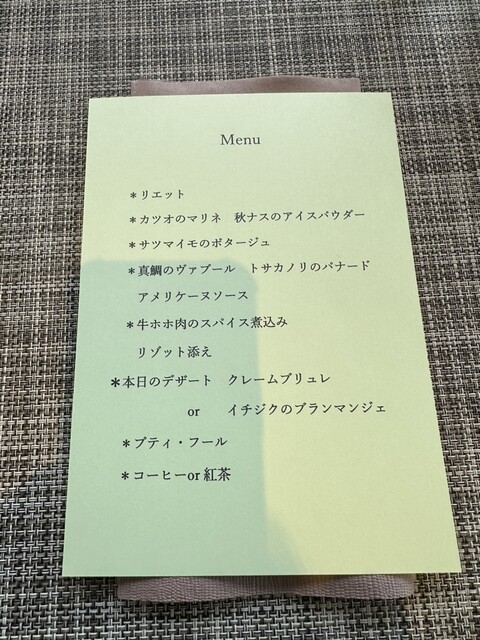 Menu
＊リエット
＊カツオのマリネ　秋ナスのアイスパウダー
＊サツマイモのポタージュ
＊真鯛のヴァプール　トサカノリのパナード
アメリケーヌソース
＊牛ホホ肉のスパイス煮込み
リゾット添え
＊本日のデザート　クレームブリュレ
or　イチジクのブランマンジェ
＊プティ・フール
＊コーヒーor 紅茶